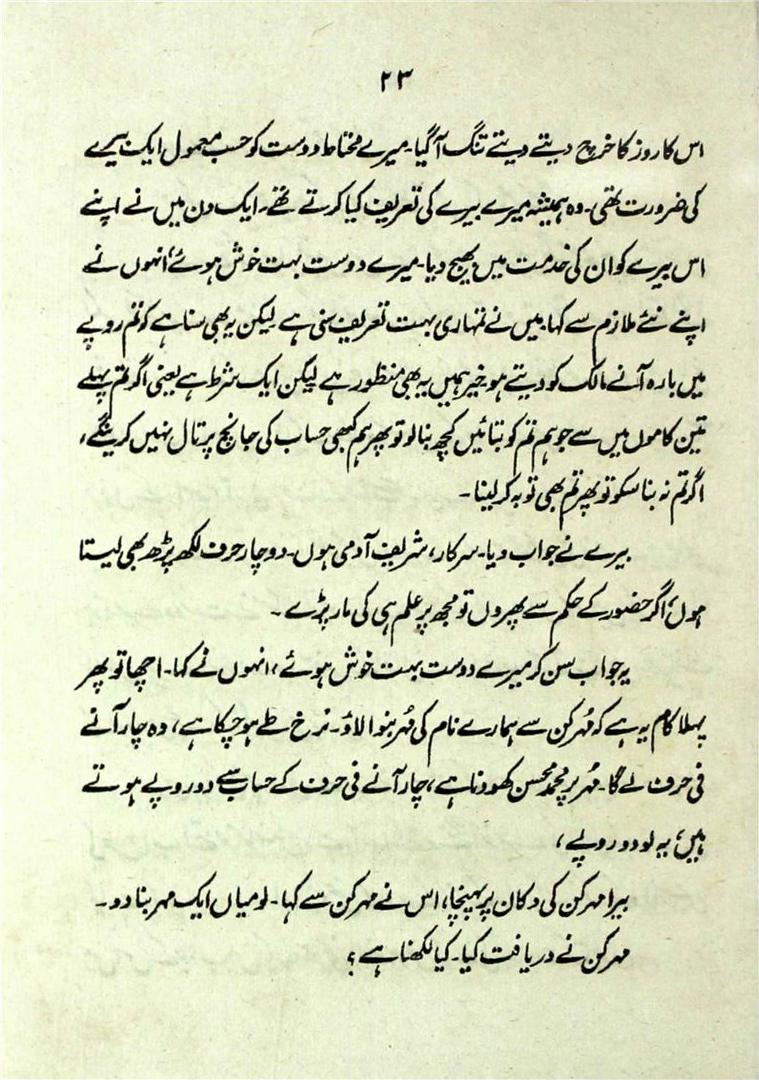 ۲۳
اس کا روز کا خرچ دیتے دیتے تنگ آ گیا۔ میرے محتاط دوست کو حسب معمول ایک بیرے
کی ضرورت تھی۔ وہ ہمیشہ میرے بیرے کی تعریف کیا کرتے تھے۔ ایک دن میں نے اپنے
اس بیرے کو ان کی خدمت میں بھیج دیا۔ میرے دوست بہت خوش ہوئے، انہوں نے
اپنے نئے ملازم سے کہا، میں نے تمہاری بہت تعریف سنی ہے لیکن یہ بھی سنا ہے کہ تم روپے
میں بارہ آنے مالک کو دیتے ہو خیر ہمیں یہ بھی منظور ہے لیکن ایک شرط ہے یعنی اگر تم پہلے
تین کاموں میں سے جو ہم تم کو بتائیں کچھ بنا لو تو پھر ہم کبھی حساب کی جانچ پرتال نہیں کرینگے،
اگر تم نہ بنا سکو تو پھر تم بھی توبہ کر لینا۔
بیرے نے جواب دیا۔ سرکار، شریف آدمی ہوں۔ دو چار حرف لکھ پڑھ بھی لیتا
ہوں، اگر حضور کے حکم سے پھروں تو مجھ پر علم ہی کی مار پڑے۔
یہ جواب سن کر میرے دوست بہت خوش ہوئے، انہوں نے کہا۔ اچھا تو پھر
پہلا کام یہ ہے کہ مُہرکن سے ہمارے نام کی مُہر بنوا لاؤ۔ نرخ طے ہو چکا ہے، وہ چار آنے
فی حرف لے گا۔ مُہر پر محمد محسن کھودنا ہے، چار آنے فی حرف کے حساب سے دو روپے ہوتے
ہیں، یہ لو دو روپے،
بیرا مہرکن کی دکان پر پہنچا، اس نے مہرکن سے کہا۔ لو میاں ایک مہر بنا دو۔
مہرکن نے دریافت کیا۔ کیا لکھنا ہے؟